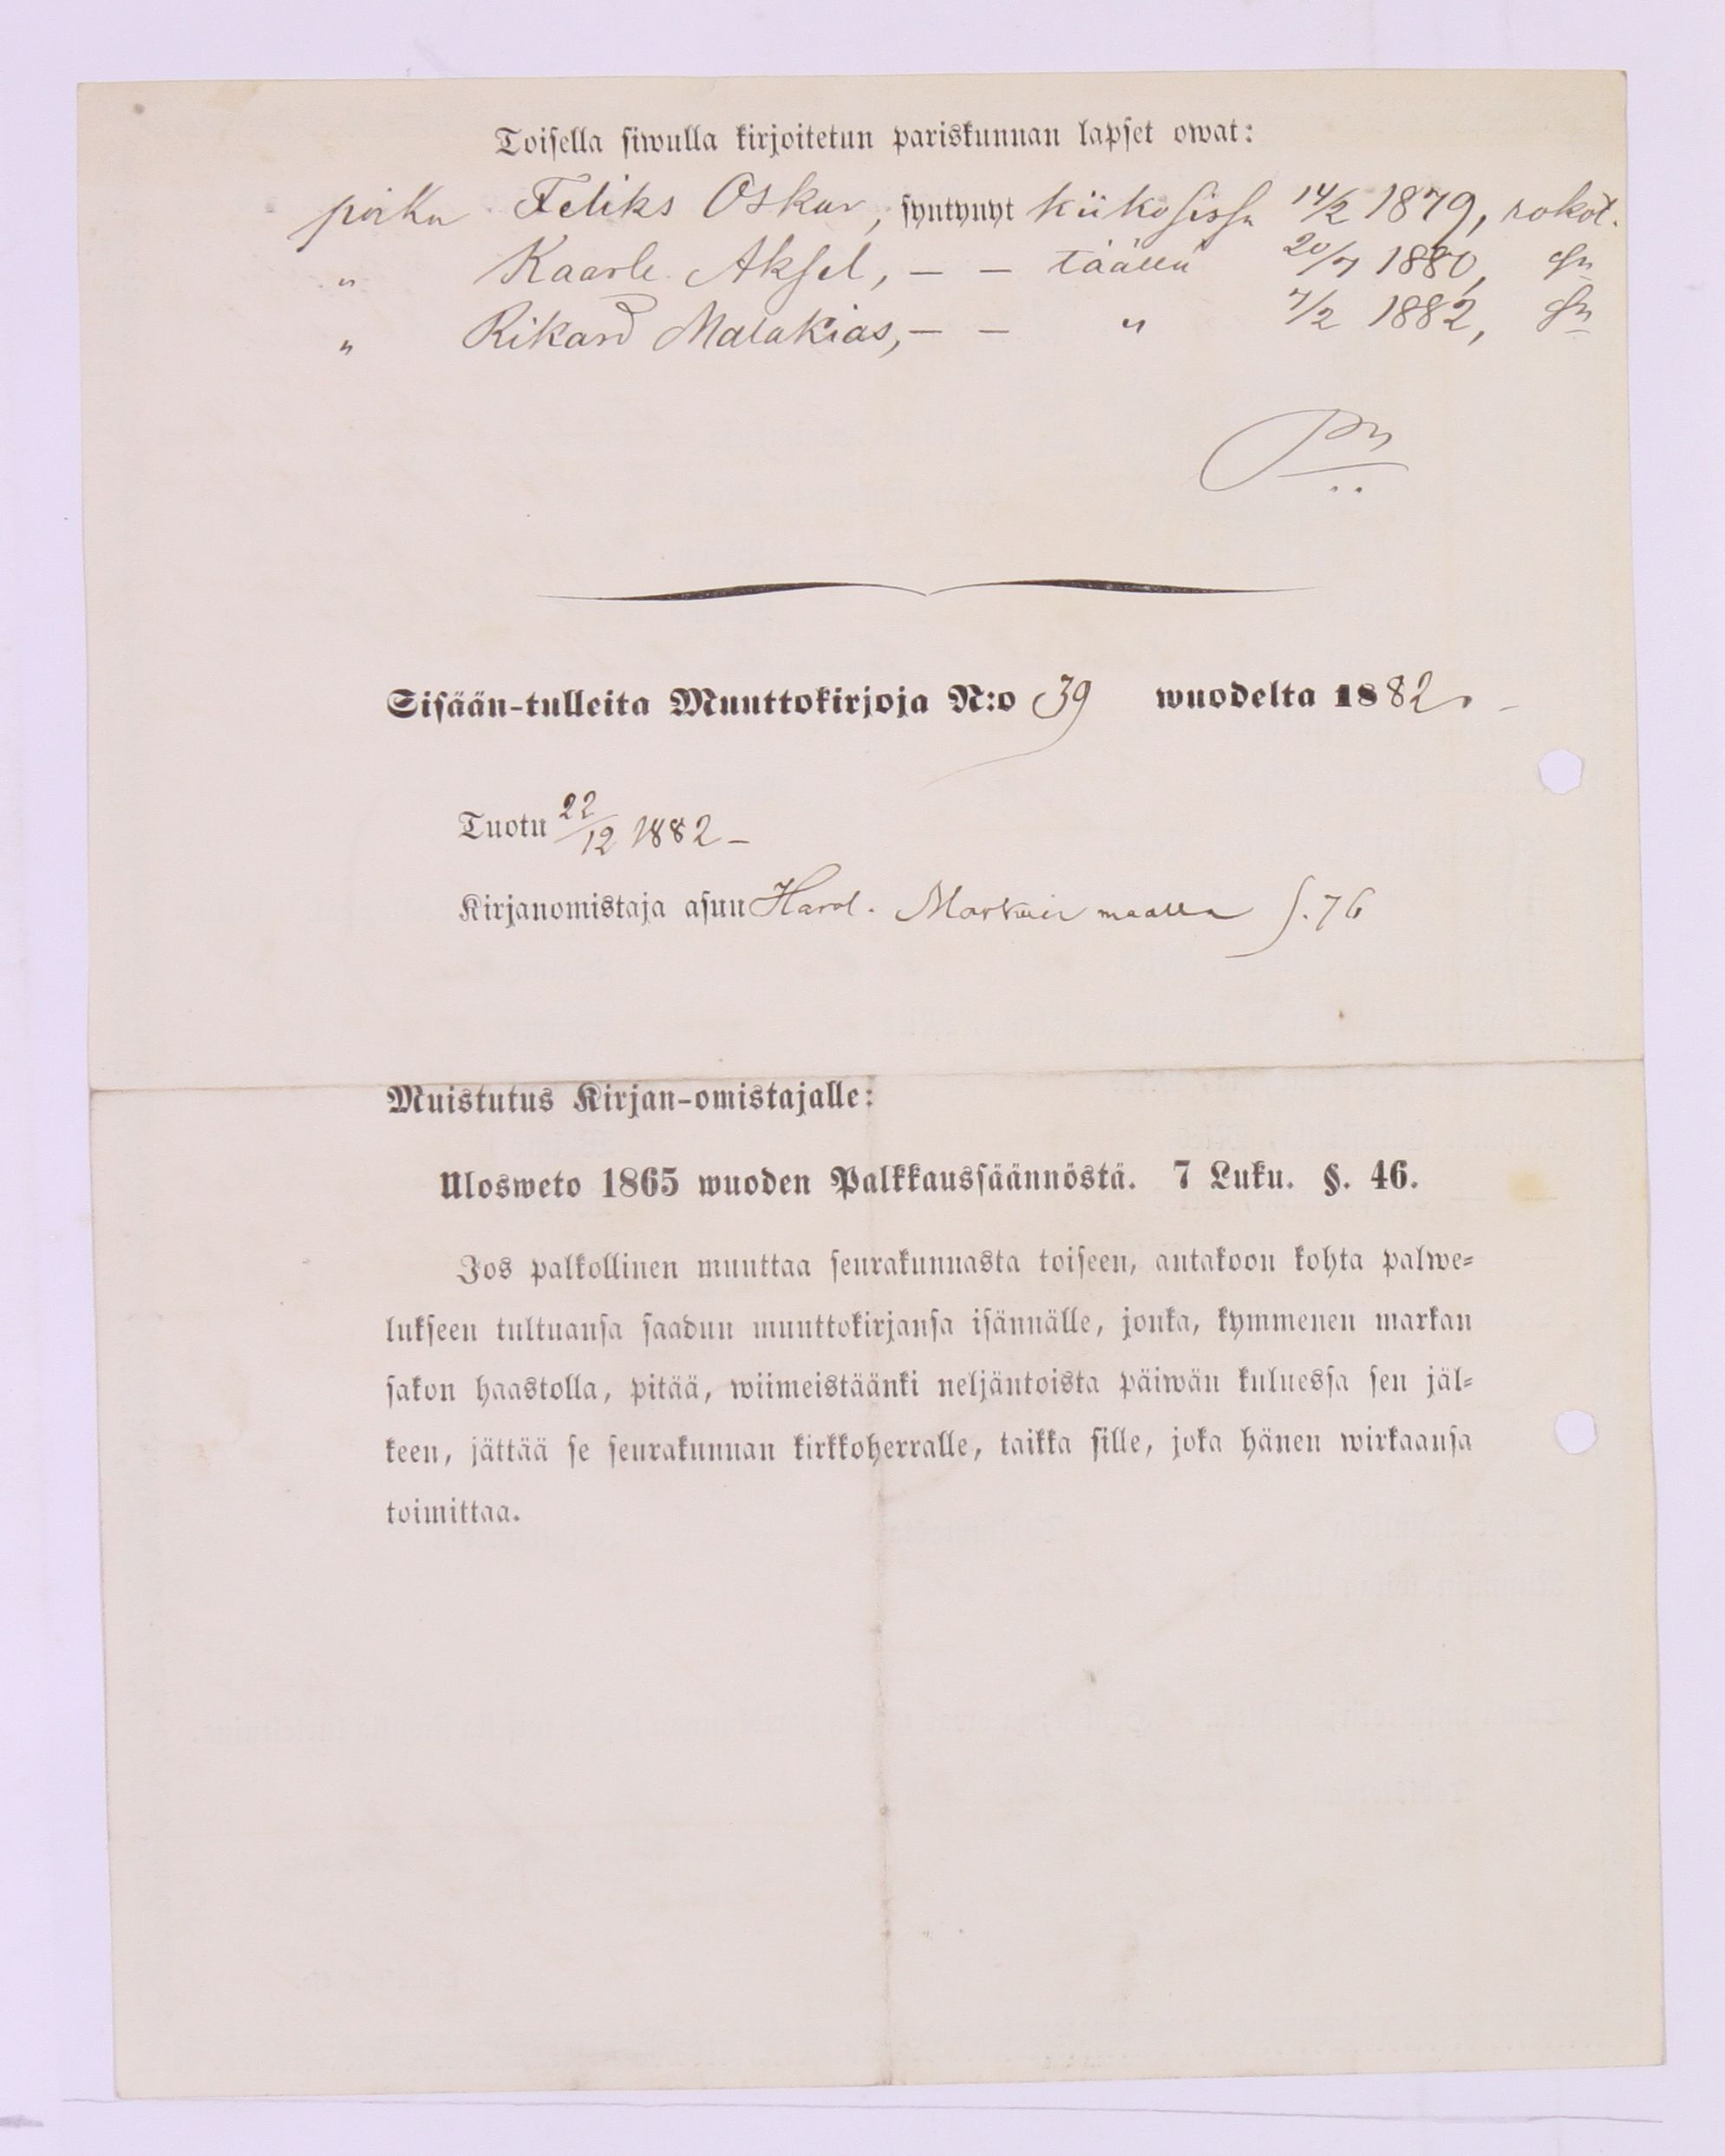 Toisella siwulla kirjoitetun pariskunnan lapset owat:
poika Feliks Oskar, syntynyt Kiikoisissa 14/2 1879, rokot.
" Kaarle Aksel, — — täällä 20/7 1880,
" Rikard Malakias, — — " 7/2 1882,
Sisään-tulleita Muuttokirjoja N:o 39 wuodelta 1882.
Tuotu 22/12 1882 –
Kirjanomistaja asuu maalla S. 76
Muistutus Kirjan-omistajalle:
Ulosweto 1865 wuoden Palkkaussäännöstä. 7 Luku. §. 46.
Jos palkollinen muuttaa seurakunnasta toiseen, antakoon kohta palwe-
lukseen tultuansa saadun muuttokirjansa isännälle, jonka, kymmenen markan
sakon haastolla, pitää, wiimeistäänki neljäntoista päiwän kuluessa sen jäl-
keen, jättää se seurakunnan kirkkoherralle, taikka sille, joka hänen wirkaansa
toimittaa.